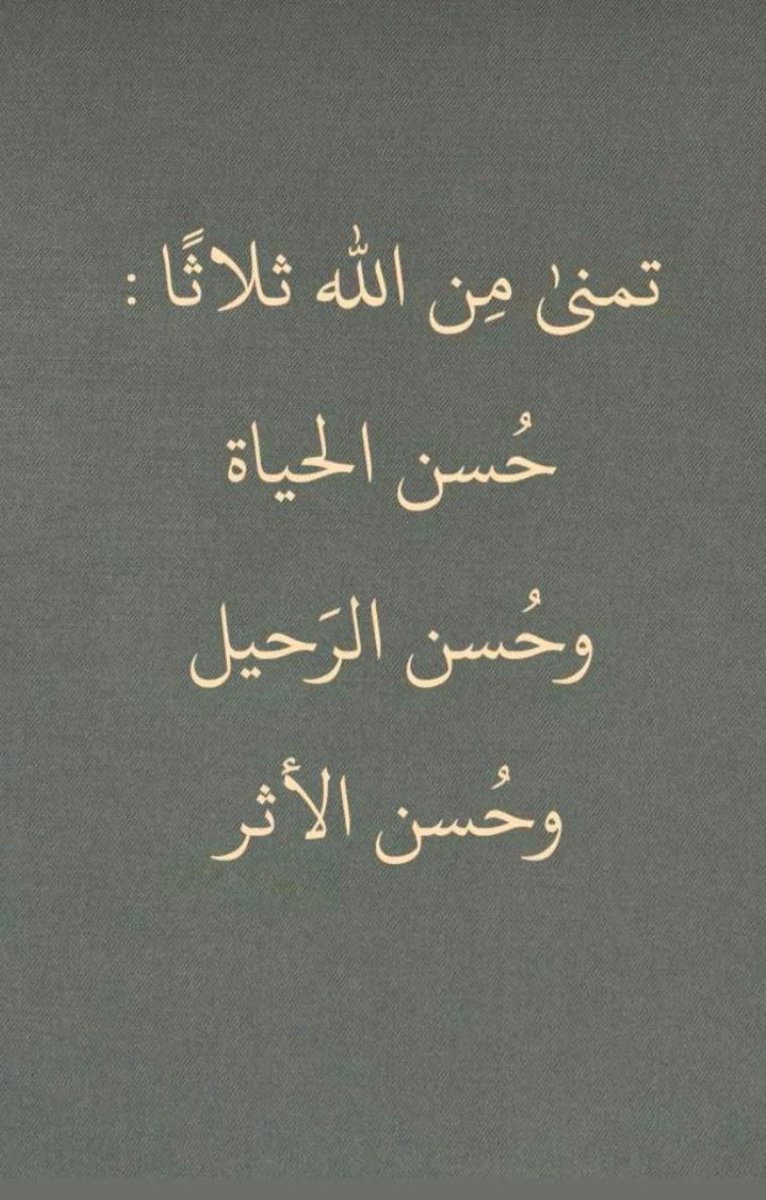 تمنىٰ مِن الله ثلاثًا :
حُسن الحياة
وحُسن الرَحيل
وحُسن الأثر